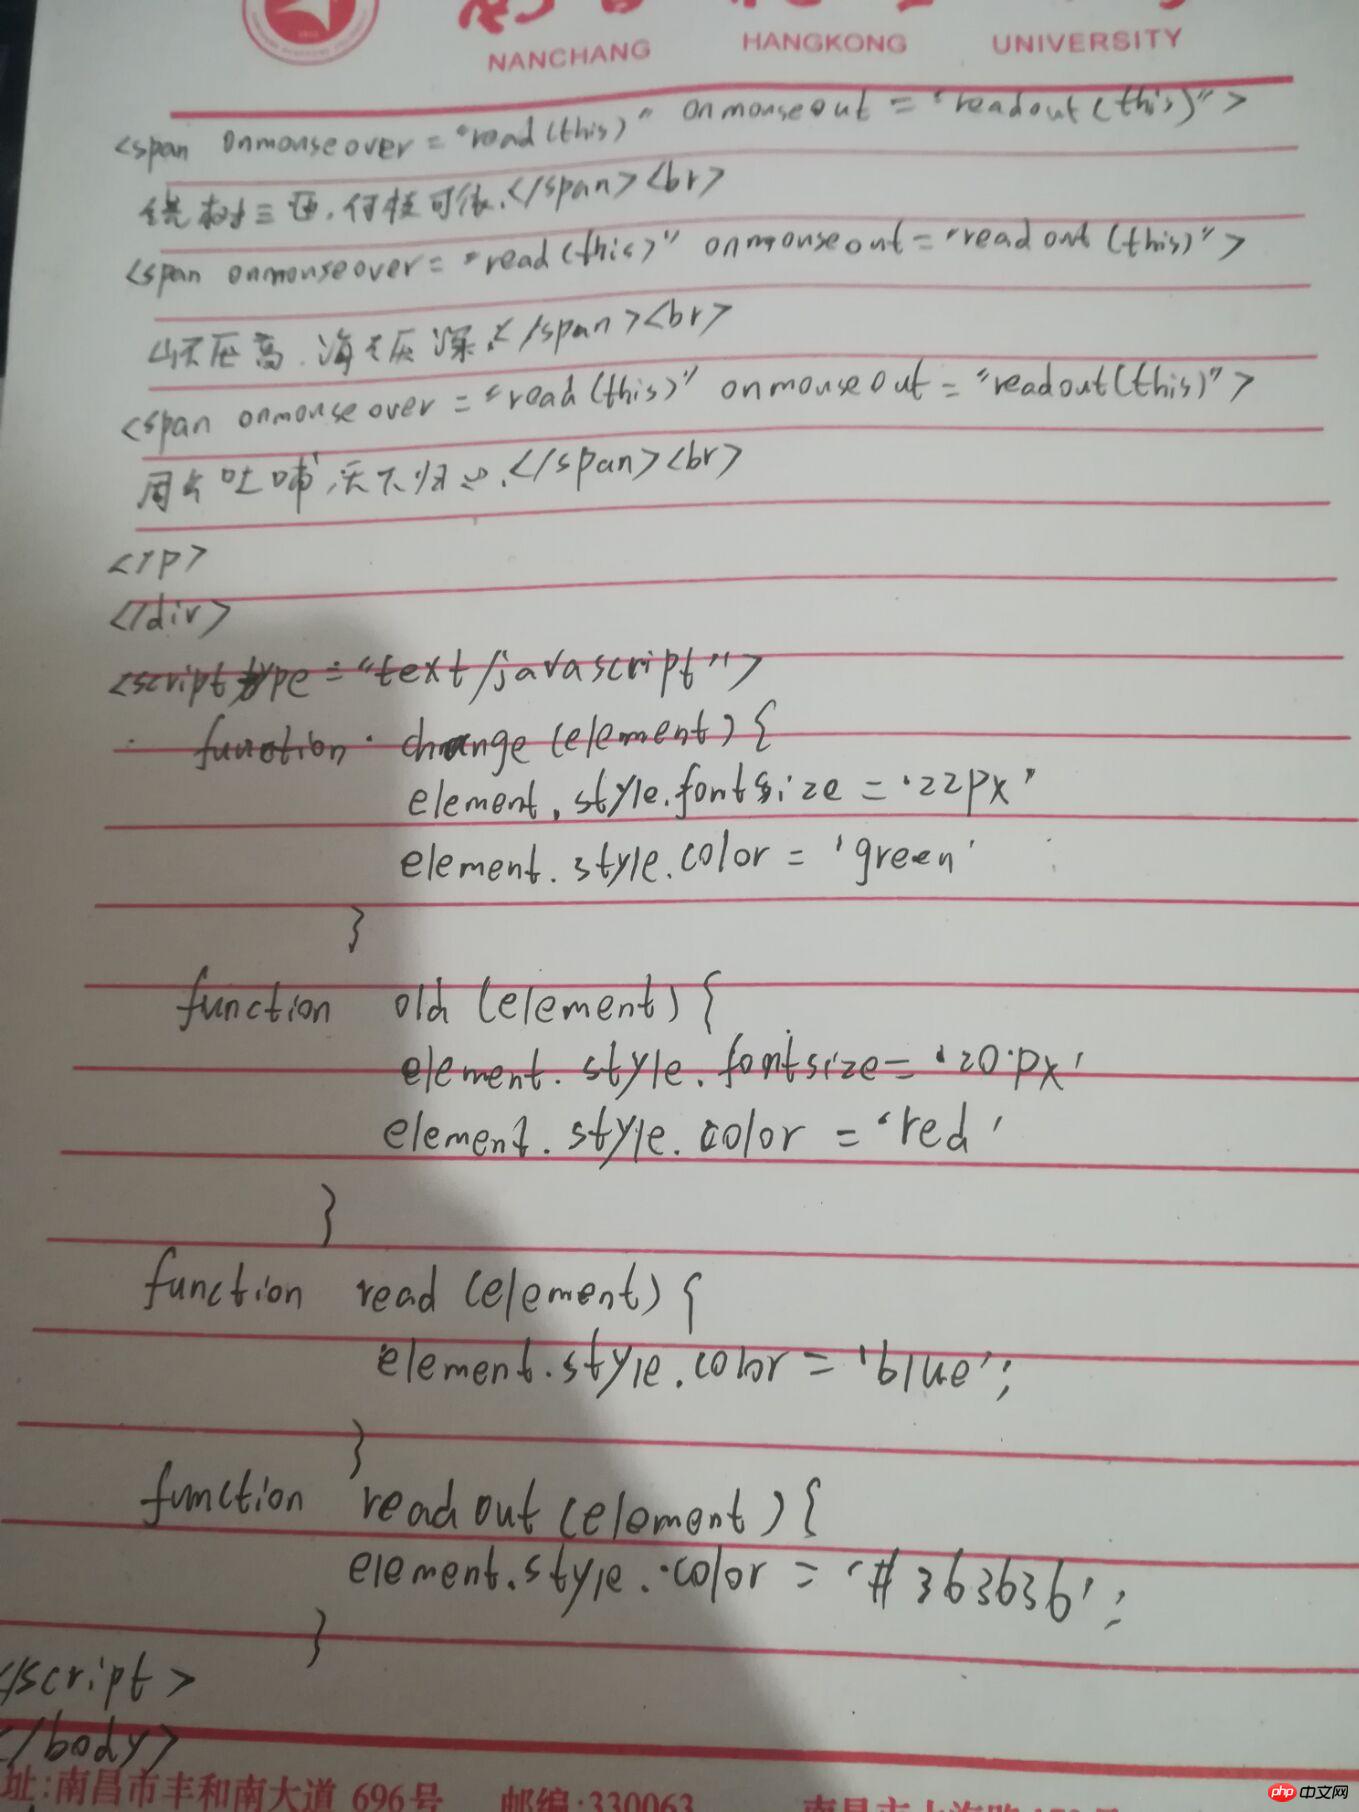 NANCHANG HANGKONG UNIVERSITY
<span onmouseover="read(this)" onmouseout="readout(this)">
绕树三匝,何枝可依.</span><br>
<span onmouseover="read(this)" onmouseout="readout(this)">
山不厌高.海不厌深.</span><br>
<span onmouseover="read(this)" onmouseout="readout(this)">
周公吐哺,天下归心.</span><br>
</p>
</div>
<script type="text/javascript">
function change(element){
element.style.fontsize='22px'
element.style.color='green'
}
function old(element){
element.style.fontsize='20px'
element.style.color='red'
}
function read(element){
element.style.color='blue';
}
function readout(element){
element.style.color='#363636';
}
</script>
</body>
址:南昌市丰和南大道 696号 邮编:330063
php 中文网